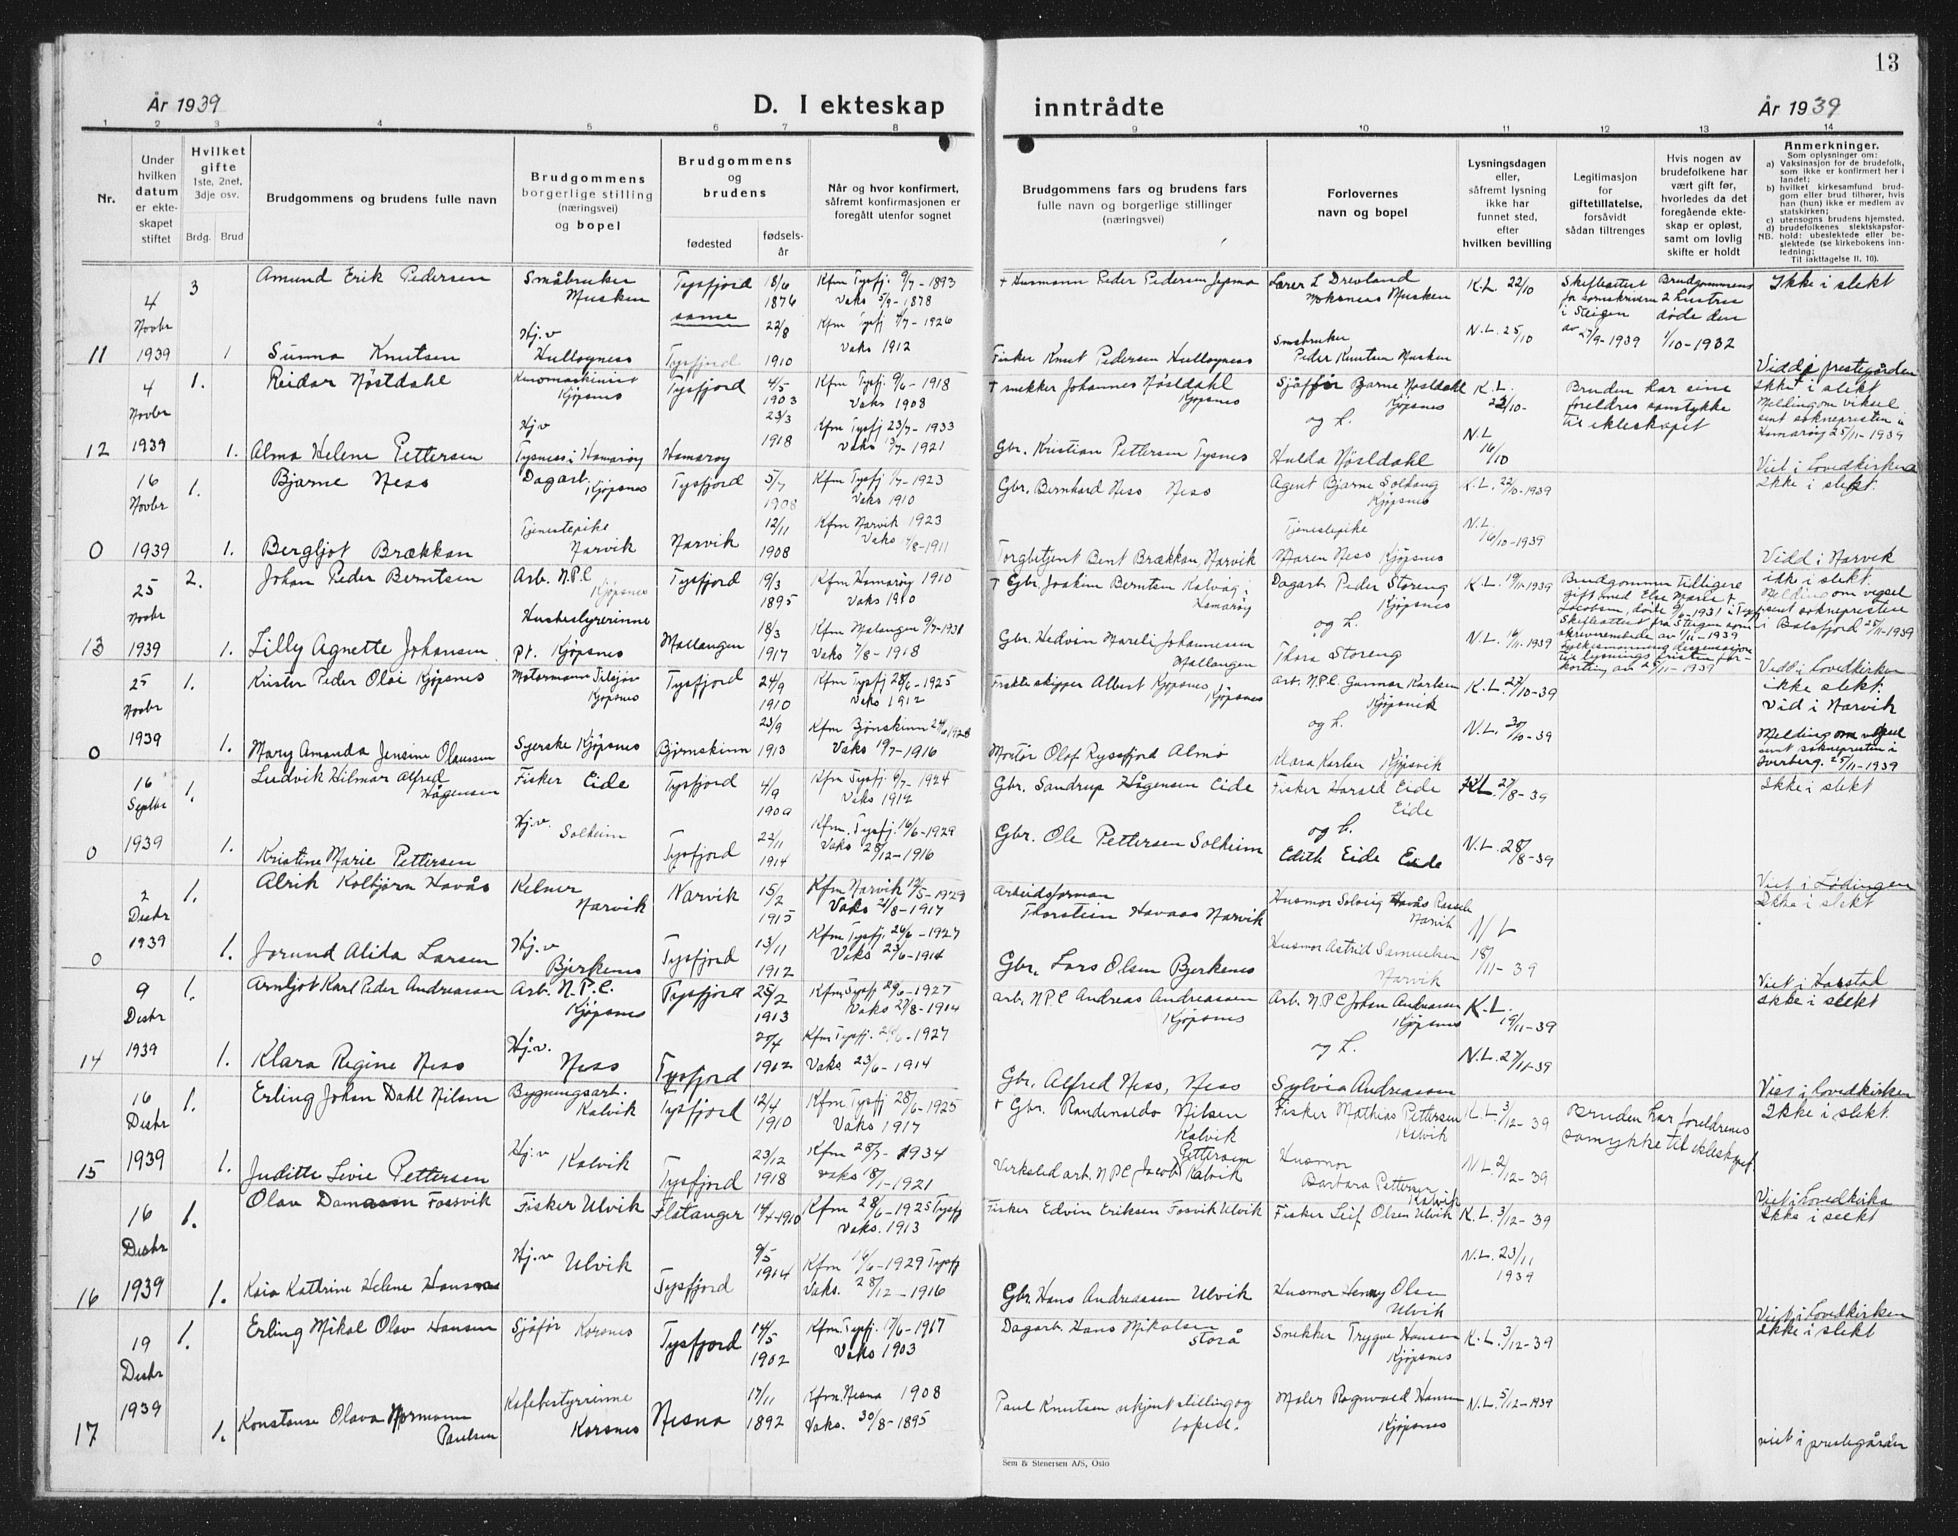 13
År 1939
D. I ekteskap
inntrådte
År 1939
1 2 3 4 5 6 7 8 9 10 11 12 13 14
Nr.
Under hvilken datum er ekteskapet stiftet
Hvilket gifte
1ste, 2net, 3dje osv.
Brdg. Brud
Brudgommens og brudens fulle navn
Brudgommens borgerlige stilling (næringsvei) og bopel
Brudgommens og brudens
fødested
fødselsår
Når og hvor konfirmert, såfremt konfirmasjonen er foregått utenfor sognet
Brudgommens fars og brudens fars fulle navn og borgerlige stillinger (næringsvei)
Forlovernes navn og bopel
Lysningsdagen eller, såfremt lysning ikke har funnet sted, efter hvilken bevilling
Legitimasjon for giftetillatelse, forsåvidt sådan tiltrenges
Hvis nogen av brudefolkene har vært gift før, hvorledes da det foregående ekteskap er opløst, samt om lovlig skifte er holdt
Anmerkninger.
Som oplysninger om:
a) Vaksinasjon for de brudefolk, som ikke er konfirmert her i landet;
b) hvilket kirkesamfund brudgom eller brud tilhører, hvis han (hun) ikke er medlem av statskirken;
c) utensogns brudens hjemsted.
d) brudefolkenes slektskapsforhold: ubeslektede eller beslektede (se kirkebokens innledning;
NB. Til iakttagelse II, 10).
11 4 Novbr 1939 3 Amund Erik Pedersen Småbruker Musken Tysfjord same 15/6 1876 Kfm Tysfj. 9/7-1893 Vaks 5/9-1878
+ Husmann Peder Pedersen Lærer L Drevland Moksnes Musken K.L. 22/10 Skifteattest for sorenskriveren i Steigen av 27/9-1939 Brudgommens 2 hustru døde den 1/10-1932 Ikke i slekt
1 Sunna Knutsen Hj.v Hullogness Tysfjord 22/8 1910 Kfm Tysfj 4/7-1926 Vaks 1912
Fisker Knut Pedersen Hullogness Småbruker Peder Knutsen Musken N.L. 25/10 Vidd i prestegården
12 4 Novbr 1939 1. Reidar Nöstdahl Kinomaskinist Kjøpsnes Tysfjord 4/5 1903 Kfm Tysfj. 9/6-1918 Vaks 1908
+ snekker Johannes Nösldahl Kjøpsnes Sjåfför Bjarne Nösldahl Kjøpsnes og h. K.L. 22/10- Bruden har sine foreldres samtykke til ekteskapet Ikke i slekt Melding om viksel sent sokneprestin i Hamarøy 25/11-1939
1. Alma Helene Pettersen Hj.v Tysness i Hamarøy Hamarøy 23/3 1918 Kfm Tysfj 23/7-1933 Vaks 13/7-1921
Gbr. Kristian Pettersen Tysnes Hulda Nösldahl N.L 16/10 Viet i Lovedkirken
0 16 Novbr 1939 1. Bjarne Ness Dagarb. Kjøpsnes Tysfjord 5/7 1908 Kfm Tysfj 1/7-1923 Vaks 1910
Gbr. Bernhard Ness Ness Agent Bjarne Solhaug Kjøpsnes K.L. 22/10-1939 Ikke i slekt.
1. Bergljot Brækkan Tjenestepike Narvik Narvik 12/11 1908 Kfm Narvik 1923 Vaks 14/8-1911
Torgbetjent Bent Brækkan, Narvik Tjenestepike Maren Ness Kjøpsnes N.L. 16/10-1939 Vidd i Narvik
13 25 Novbr 1939 2. Johan Peder Berntsen Arb. N.P.C Kjøpsnes Tysfjord 19/3 1895 Kfm Hamarøy 1910 Vaks 1910
+ Gbr. Joakim Berntsen Kalvåg i Hamarøy Dagarb Peder Storeng Kjøpsnes og h. K.L. 19/11-1939 Ikke i slekt. Melding om vegsel sent soknepresten i Balsfjord 25/11-1939
1. Lilly Agnette Johansen Husbestyrerinne pt. Kjøpsnes Mallangen 18/3 1917 Kfm Malangen 9/7-1931 Vaks 7/8-1918
Gbr. Hedvin Mareli Johannessen Mallangen Thora Storeng N.L. 16/11-1939 Vidd i Lovedkirken
0 25 Novbr 1939 1. Krister Peder Olai Kjøpsnes Motormann Kjøpsnes Tysfjord 24/9 1910 Kfm Tysfj 28/6-1925 Vaks 1912
Fiskeskipper Albert Kjøpsnes Kjøpsnes Arb. N.P.C. Gunnar Karlsen Kjøpsvik og h. K.L. 22/10-39 ikke slekt. Vid i Narvik
1. Mary Amanda Jensine Olaussen Syerske Kjøpsnes Bjørnskinn 23/9 1913 Kfm Bjønskinn 24/6 1928 Vaks 19/7-1916
Montør Olaf Ryssfjord Almø Mara Karlsen Kjøpsvik N.L. 30/10-39 Melding om vigsel sent soknepresten i Sverberg. 25/11-1939
0 16 Septbr 1939 1. Ludvik Hilmar Alfred Hågensen Fisker Eide Tysfjord 4/9 1909 Kfm Tysfj 6/7-1924 Vaks 1912
Gbr. Sandrup Hågensen Eide Fisker Harald Eide Eide og h. K.L. 27/8-39 Ikke i slekt
1. Kristine Marie Pettersen Hj.v. Solheim Tysfjord 22/11 1914 Kfm. Tysfj. 16/6-1929 Vaks 28/12-1916
Gbr. Ole Pettersen Solheim Edith Eide Eide N.L. 28/8-39 Viet i Lödingen
0 2 Desbr 1939 1. Alrik Kolbjørn Havås Kelner Narvik Narvik 15/2 1915 Kfm Narvik 12/5-1929 Vaks 21/8-1917
Arbeidsforman Thorstein Havaas Narvik Husmor Solveig Havås Narvik N L 18/11-39 Ikke i slekt
1. Jorund Alida Larsen Hj.v Bjerkenes Tysfjord 13/11 1912 Kfm Tysfj. 26/6-1927 Vaks 23/6-1914
Gbr. Lars Olsen Bjerkenes Husmor Astrid Samuelsen Narvik Viet i Harstad
14 9 Desbr 1939 1. Arnljot Karl Peder Andreassen Arb. N.P.C. Kjøpsnes Tysfjord 25/2 1913 Kfm Tysfj 29/6-1927 Vaks 27/8-1914
Arb. N.P.C Andreas Andreassen Kjøpsnes Arb. N.P.C Johan Andreassen Kjøpsnes og h. K.L. 19/11-39 Ikke i slekt
1. Klara Regine Ness Hj.v. Ness Tysfjord 20/4 1912 Kfm Tysfj. 26/6-1927 Vaks 23/6-1914
Gbr. Alfred Ness, Ness Sylvia Andreassen N.L. 27/11-39 Viet i Lovedkirken
15 16 Desbr 1939 1. Erling Johan Dahl Nilsen Bygningsarb. Kalvik Tysfjord 12/4 1910 Kfm Tysfj 28/6-1925 Vaks 1917
+ Gbr. Randinaldo Nilsen Kalvik Fisker Mathias Pettersen Kalvik K.L. 3/12-39 Bruden har foreldrenes samykke til ekteskapet Ikke i slekt.
1. Juditte Levie Pettersen Hj.v Kalvik Tysfjord 23/12 1918 Kfm 28/7-1934 Vaks 18/1-1921
Verksted arb. N.P.C Jacob Pettersen Kalvik Husmor Barbara Pettersen Kalvik N.L. 2/12-39 Viet i Lovedkirka
16 16 Desbr 1939 1. Olav Damassn Forsvik Fisker Ulvik Flatanger 14/4-1910 Kfm 28/6-1925 Tysfj Vaks. 1913
Fisker Edvin Eriksen Fosvik Ulvik Fisker Leif Olsen Ulvik K.L. 3/12-39 Ikke i slekt
1. Kaia Kathrine Helene Hansen Hj.v Ulvik Tysfjord 9/5 1914 Kfm 16/6-1929 Tysfj Vaks. 28/12-1916
Gbr. Hans Andreassen Ulvik Husmor Henny Olsen Ulvik N.L. 23/11 1939 Viet i Lovedkirken
17 19 Desbr 1939 1. Erling Mikal Olav Hansen Sjåfør Korsnes Tysfjord 14/5 1902 Kfm. Tysfj. 17/6-1917 Vaks 1903
Dagarb. Hans Mikalsen Storå Snekker Trygve Hansen Kjøpsnes K.L. 3/12-39 Ikke i slekt
1. Konstanse Olava Normann Paulsen Kafebestyrrinne Korsnes Nesna 17/11 1892 Kfm. Nesna 1908 Vaks. 30/8-1895
Paul Knutsen ukjent stilling og bopel. Maler Ragnvald Hansen Kjøpsnes N.L. 5/12-1939 viet i prestegården
Sem & Stenersen A/S, Oslo